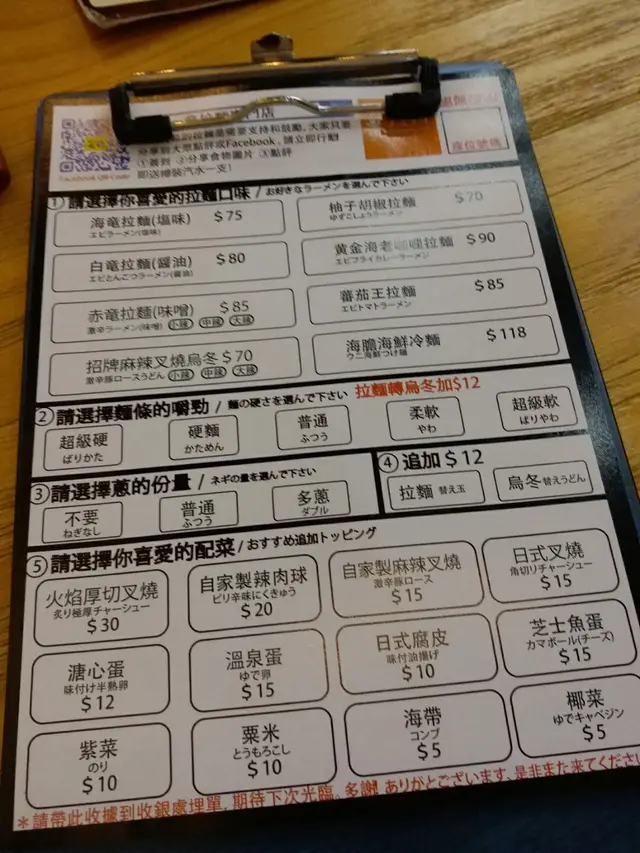 拉麵專門店
的拉麵是需要支持和鼓勵。大家只要
分享到大眾點評或Facebook，請立即行動!
①簽到 ②分享食物圖片 ③點評
即送樽裝汽水一支!
Facebook QR Code
座位號碼
①請選擇你喜愛的拉麵口味 / お好きなラーメンを選んで下さい
海竜拉麵(塩味) $75
エビラーメン(塩味)
柚子胡椒拉麵 $70
ゆずこしょうラーメン
白竜拉麵(醤油) $80
エビとんこつラーメン(醤油)
黄金海老咖喱拉麵 $90
エビフライカレーラーメン
赤竜拉麵(味噌) $85
激辛ラーメン(味噌) 小辣 中辣 大辣
蕃茄王拉麵 $85
エビトマトラーメン
招牌麻辣叉燒烏冬 $70
激辛豚ロースうどん 小辣 中辣 大辣
海膽海鮮冷麵 $118
ウニ海鮮つけ麵
②請選擇麵條的嚼勁 / 麵の硬さを選んで下さい 拉麵轉烏冬加$12
超級硬
ばりかた
硬麵
かためん
普通
ふつう
柔軟
やわ
超級軟
ばりやわ
③請選擇蔥的份量 / ネギの量を選んで下さい
不要
ねぎなし
普通
ふつう
多蔥
ダブル
④追加 $12
拉麵 替え玉
烏冬 替えうどん
⑤請選擇你喜愛的配菜 / おすすめ追加トッピング
火焰厚切叉燒
炙り極厚チャーシュー
$30
自家製辣肉球
ピリ辛味にくきゅう
$20
自家製麻辣叉燒
激辛豚ロース
$15
日式叉燒
角切りチャーシュー
$15
溏心蛋
味付け半熟卵
$12
溫泉蛋
ゆで卵
$15
日式腐皮
味付油揚げ
$10
芝士魚蛋
カマボール(チーズ)
$15
紫菜
のり
$10
粟米
とうもろこし
$10
海帶
コンブ
$5
椰菜
ゆでキャベジン
$5
*請帶此收據到收銀處埋單，期待下次光臨。多謝! ありがとございます、是非また来てください